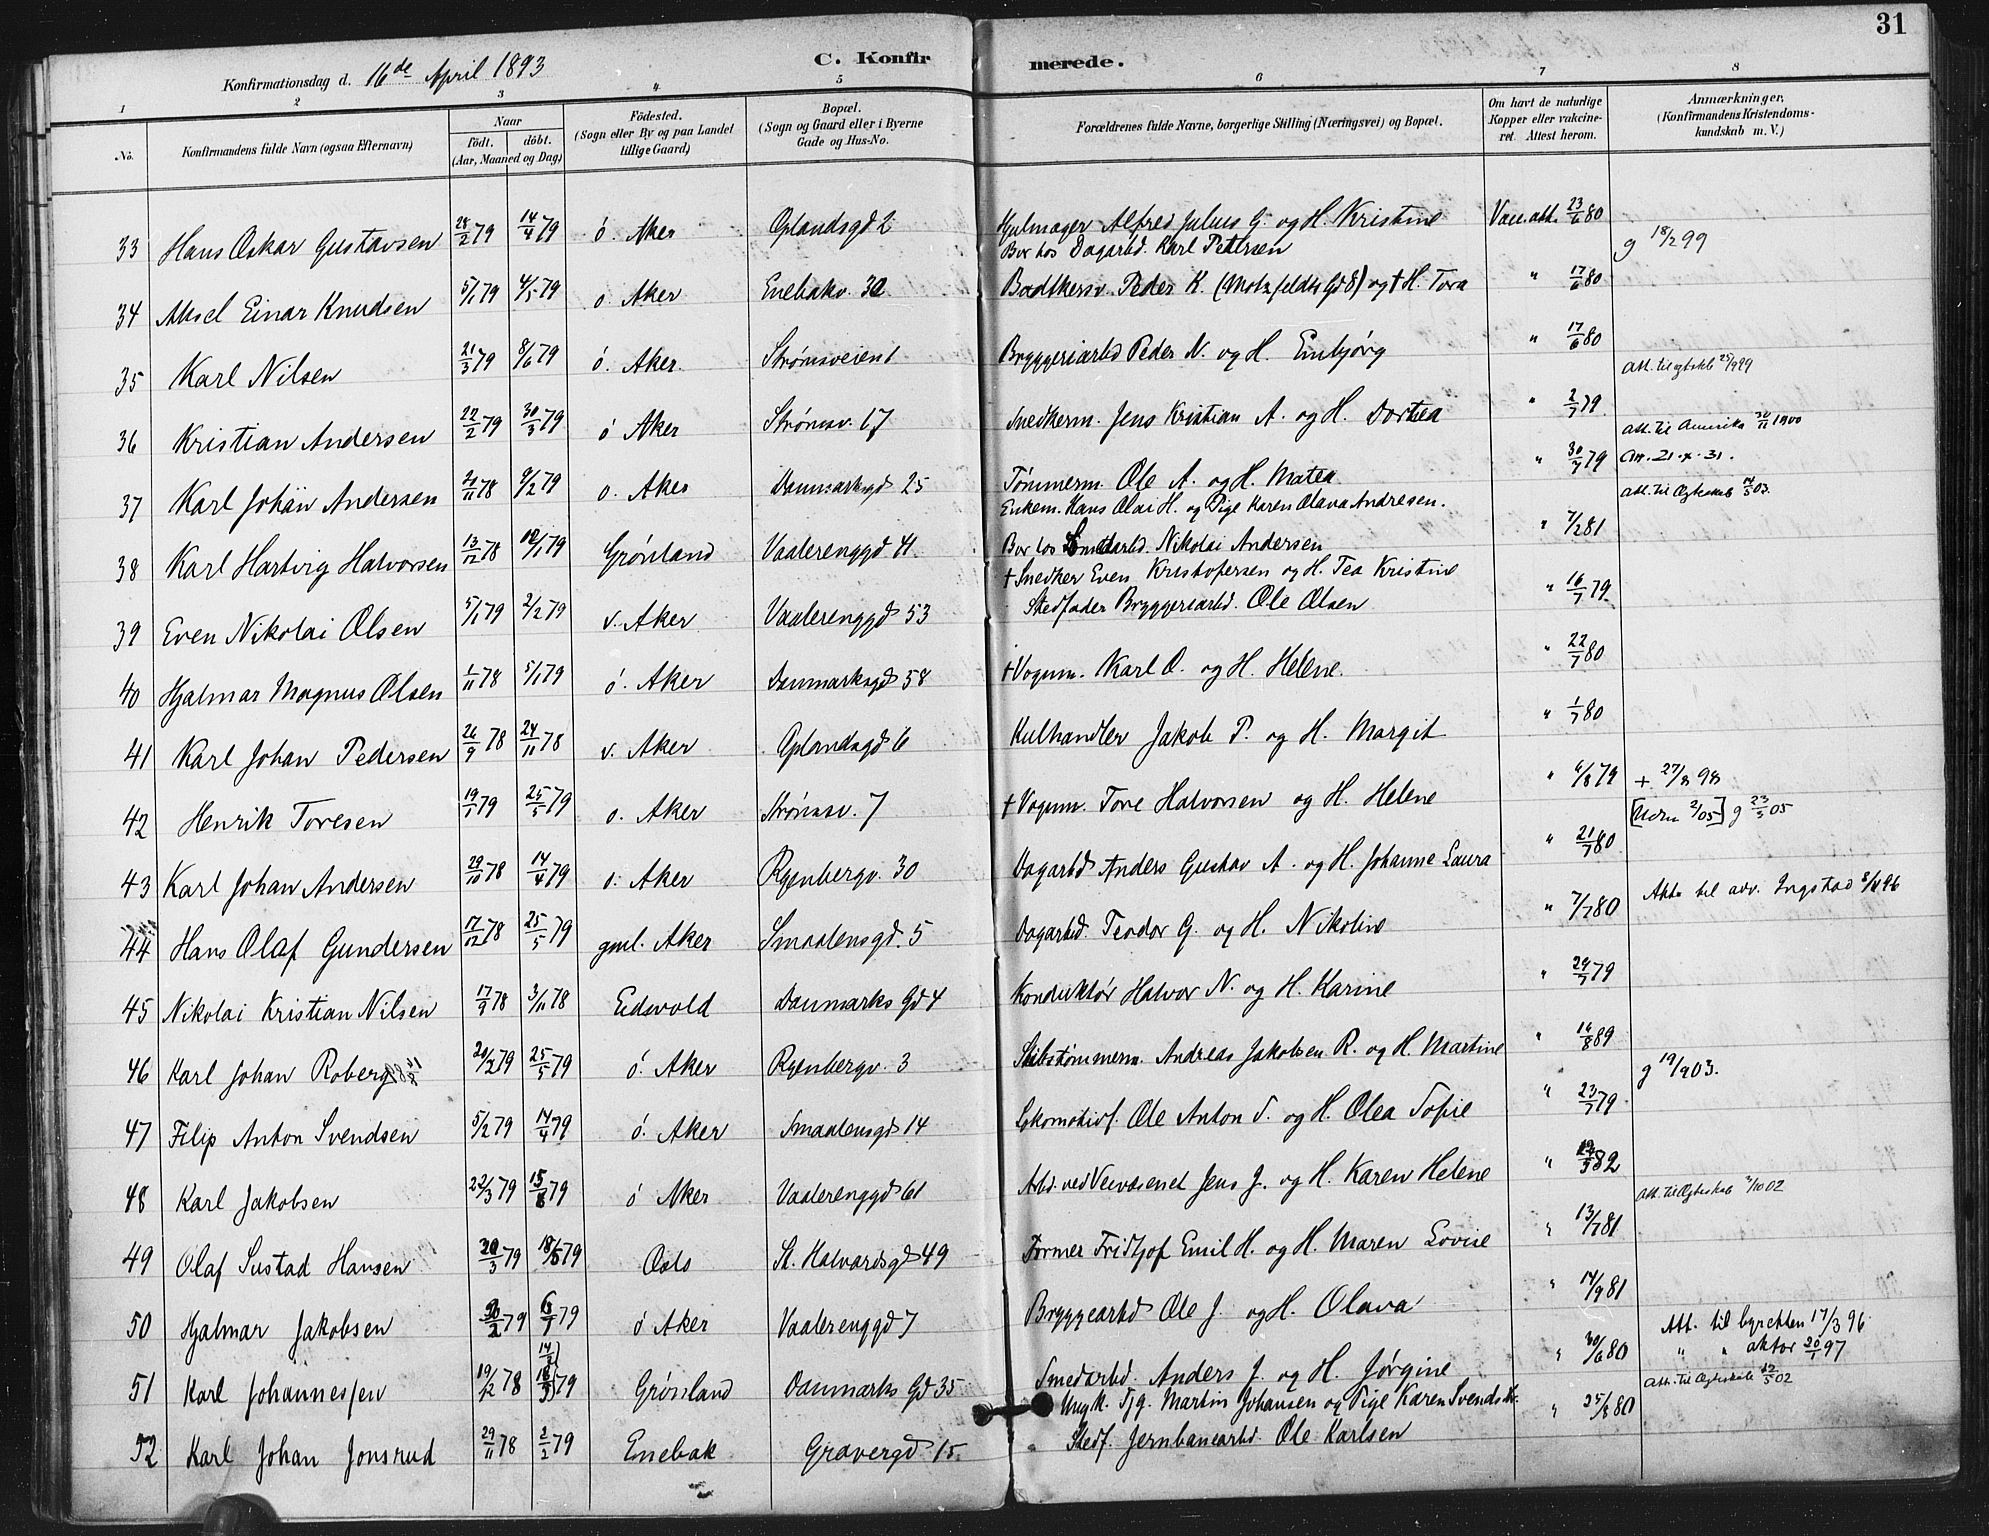 31
Konfirmationsdag d. 16de April 1893
C. Konfirmerede.
1 2 3 4 5 6 7 8
No. Konfirmandens fulde Navn (ogsaa Efternavn) Naar født. døbt. (Aar, Maaned og Dag) Fødested. (Sogn eller By og paa Landet tillige Gaard) Bopæl. (Sogn og Gaard eller i Byerne Gade og Hus-No. Forældrenes fulde Navne, borgerlige Stilling (Næringsvei) og Bopæl. Om havt de naturlige Kopper eller vakcineret. Attest herom. Anmærkninger, (Konfirmandens Kristendomskundskab m. V.)
33 Hans Oskar Gustavsen 28/2 79 14/4 79 ó. Aker Oplandsgd 2 Hjulmager Alfred Julius G. og H. Kristine Vacc.att. 23/6 80
Bor hos Dagarbd. Karl Petersen g 18/2 99
34 Aksel Einar Knudsen 5/1 79 4/5 79 o. Aker Enebakv. 30 Bødkersv. Peder K. (Motzfeldts Gd 8) og † H. Tora " 17/6 80
35 Karl Nilsen 21/3 79 8/6 79 ó. Aker. Strømsveien 1 Bryggeriarbd Peder N. og H. Embjørg " 17/6 80 Att. til ægtskb 25/9 99
36 Kristian Andersen 22/2 79 30/3 79 ó Aker Strømsv. 67 Snedkerm. Jens Kristian A. og H. Dortea " 2/7 79 Att. til Amerika 1900
37 Karl Johan Andersen 78 9/2 79 o. Aker Danmarksgd 25 Tømmerm. Ole A. og H. Matea " 30/7 79 Att. 21-X-31.
Enkem. Hans Olai H. og Pige Karen Olava Andresen. Att. til Ægteskab 03.
38 Karl Hartvig Halvorsen 13/12 78 79 Grønland Vaalerenggd 41. Bor hos Smedarbd. Nikolai Andersen " 7/2 81
39 Even Nikolai Olsen 5/1 79 2/2 79 v. Aker Vaalerenggd 53 † Snedker Even Kristofersen og H. Tea Kristine " 16/7 79
Stedfader Bryggeriarbd. Ole Olsen
40 Hjalmar Magnus Olsen 1/11 78 5/1 79 ó. Aker Danmarksgd 58 † Vognm. Karl O. og H. Helene. " 22/7 80
41 Karl Johan Pedersen 26/9 78 24/11 78 v. Aker Oplandsgd 6 Kulhandler Jakob P. og H. Margit " 1/7 80
42 Henrik Toresen 19/1 79 25/5 79 o. Aker Strømsv. 7 † Vognm. Tore Halvorsen og H. Helene " 6/8 79 + 27/8 98
43 Karl Johan Andersen 29/10 78 14/4 79 o. Aker Ryenbergv. 30 Dagarbd Anders Gustav A. og H. Johanne Laura " 21/7 80 [Udm 2/05] g 23/5 05
44 Hans Olaf Gundersen 17/12 78 25/5 79 gml. Aker Smaalensgd. 5 Dagarbd. Teodor G. og H. Nikoline " 7/7 80 Att. til adv. Ingstad 96
45 Nikolai Kristian Nilsen 17/9 78 3/11 78 Eidsvold Danmarks Gd 4 Konduktør Halvor N. og H. Karine " 29/7 79
46 Karl Johan Roberg 20/2 79 25/5 79 ó. Aker Ryenbergv. 3 Skibstømmerm. Andreas Jakobsen R. og H. Martine " 16/8 89
47 Filip Anton Svendsen 5/2 79 14/4 79 ó. Aker Smaalensgd 14 Lokomotivf. Ole Anton S. og H. Olea Sofie " 23/7 79 g 19/9 03.
48 Karl Jakobsen 22/3 79 15/6 79 ó Aker Vaalerenggd 61 Arbd. ved Veivæsenet Jens J. og H. Karen Helene " 82
49 Olaf Sustad Hansen 20/3 79 18/5 79 Oslo St. Halvardsgd 49 Former Fridtjof Emil H. og H. Maren Lovise " 13/7 81 Att. til Ægteskab 02
50 Hjalmar Jakobsen 79 6/7 79 ó Aker Vaalerenggd 7 Bryggearbd Ole J. og H. Olava " 14/9 81
51 Karl Johannessen 19/12 78 14/3 18/3 79 Grønland Danmarks Gd 35 Smedarbd. Anders J. og H. Jørgine " 30/6 80 Att. til byretten 17/3 96
" " aktor 20/1 97
52 Karl Johan Jonsrud 29/11 78 2/2 79 Enebak Gravergd 15. Ungk. Tjg. Martin Johansen og Pige Karen Svendsdtr. " 25/8 80 Att. til Ægteskab 12/5 02
" Stedf. Jernbanearbd. Ole Karlsen